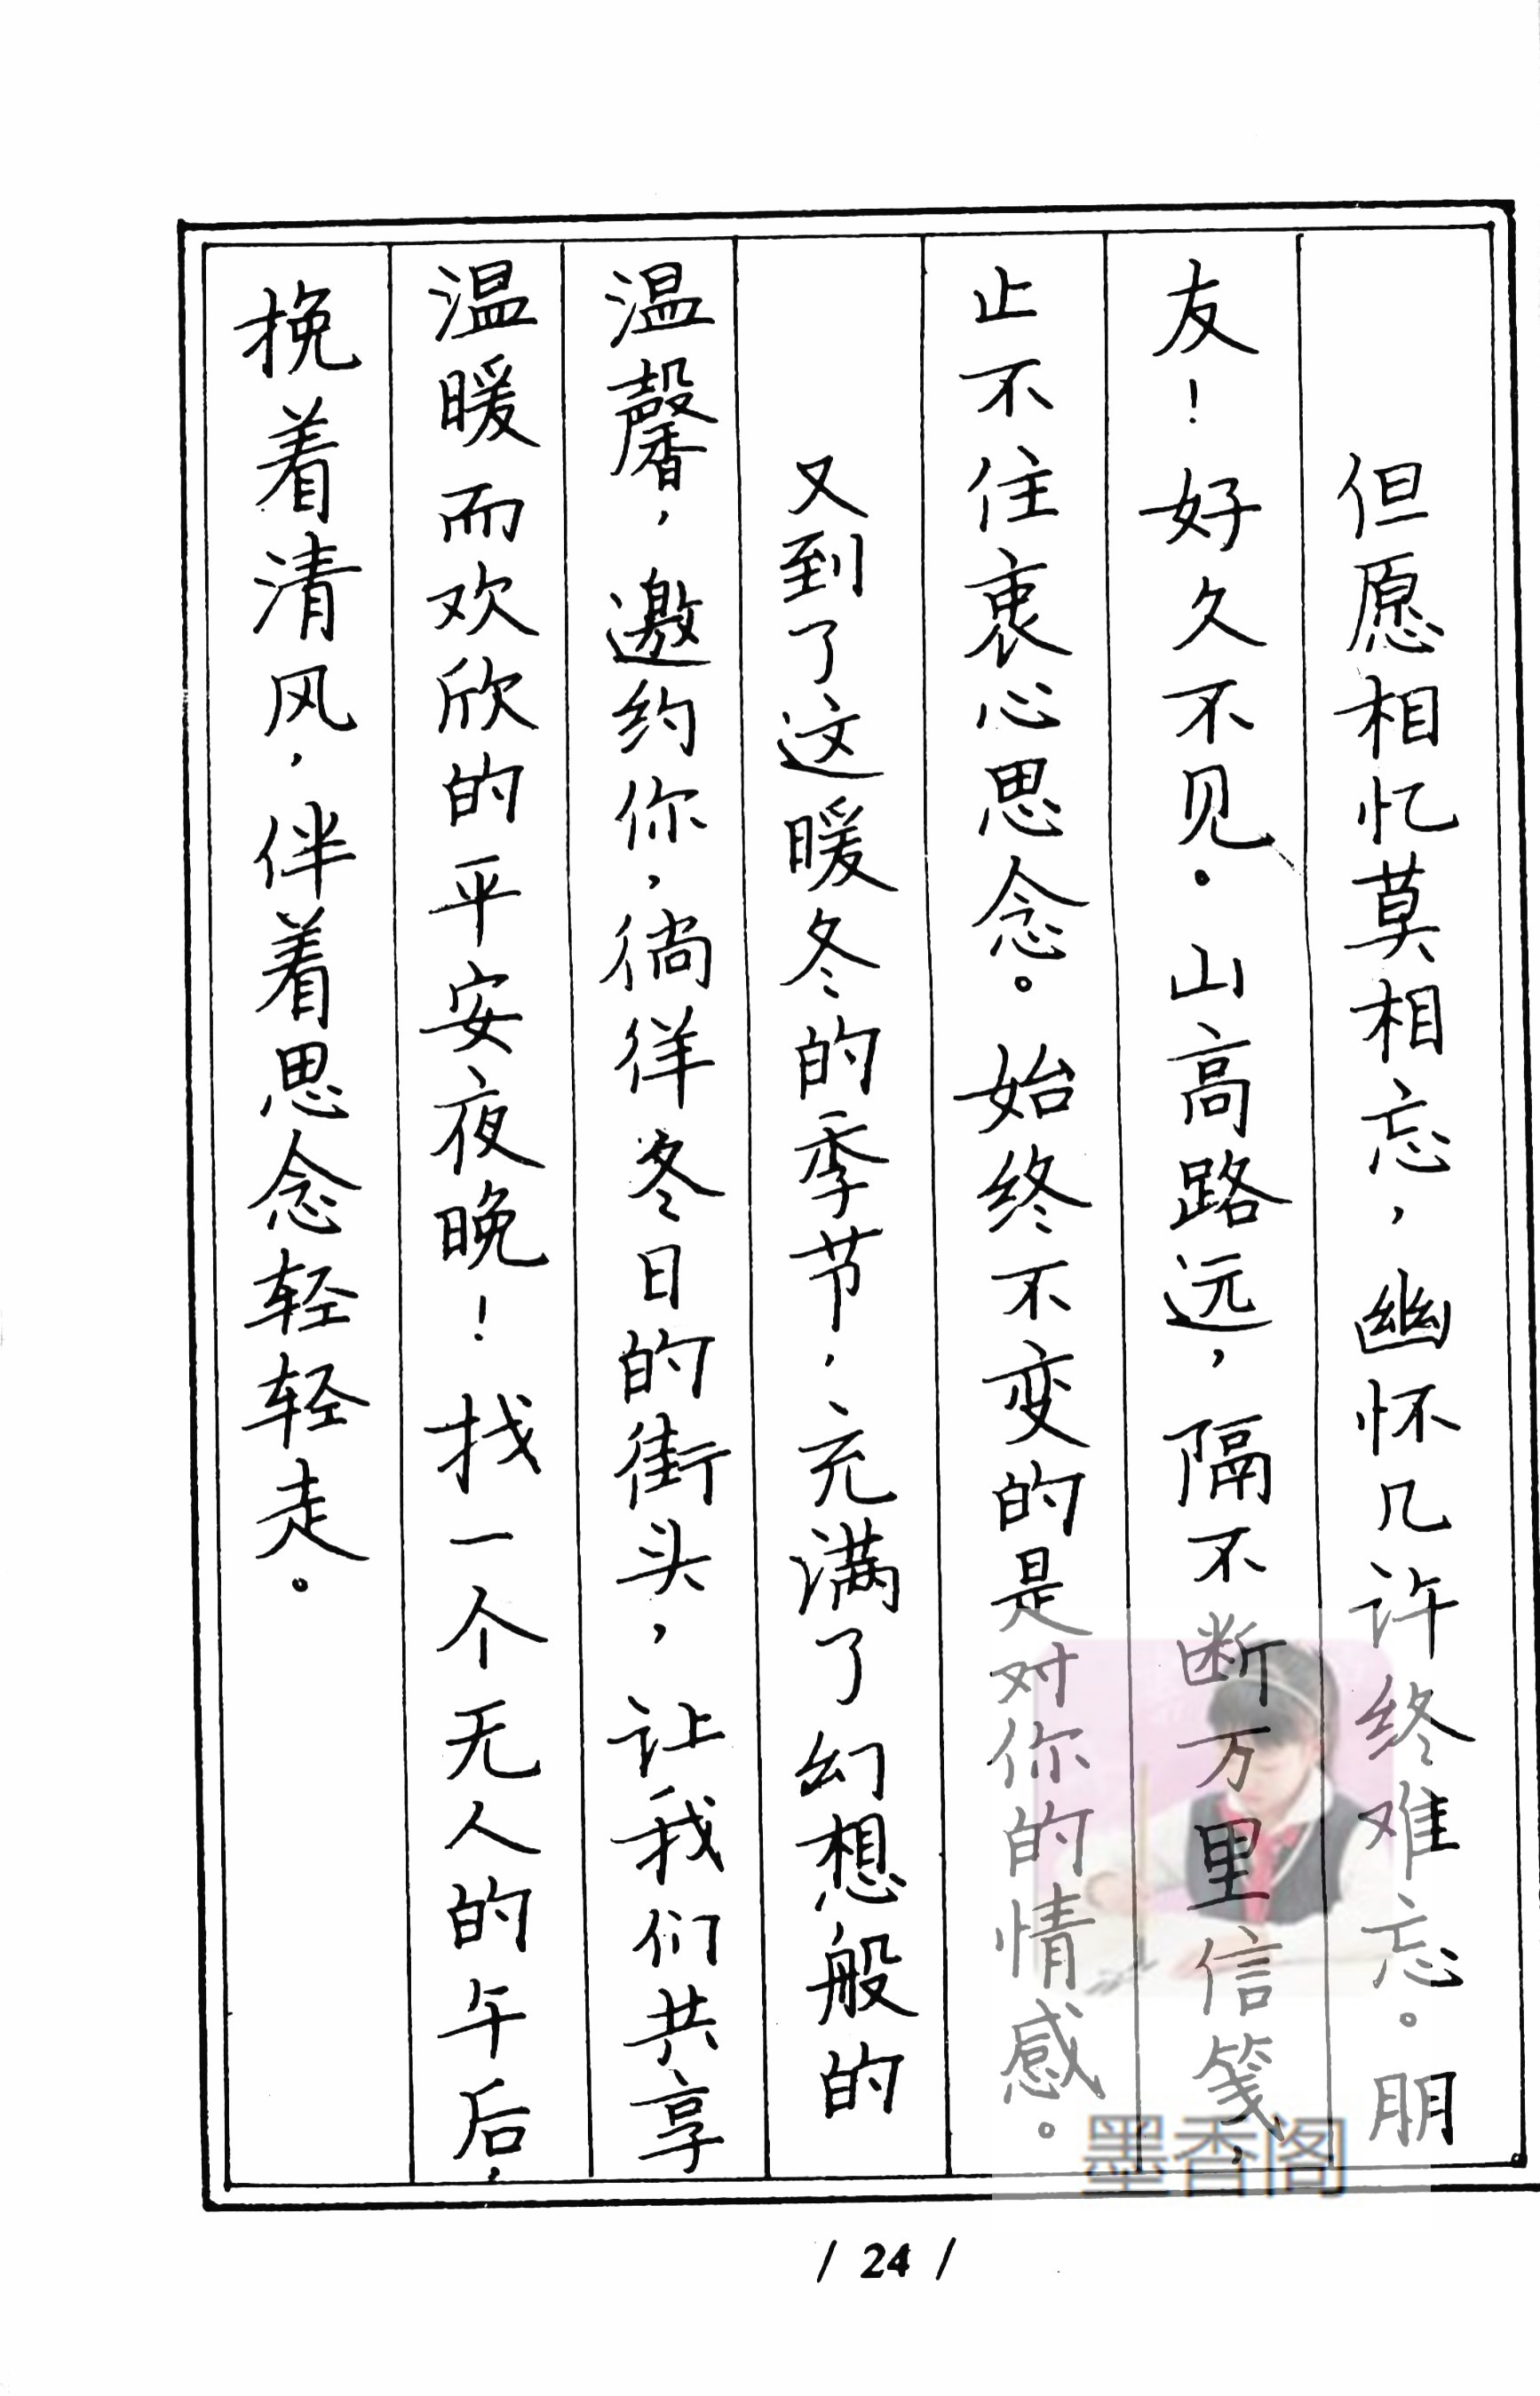 但愿相忆莫相忘，幽怀几许终难忘。朋
友！好久不见。山高路远，隔不断万里信笺，
止不住衷心思念。始终不变的是对你的情感。
又到了这暖冬的季节，充满了幻想般的
温馨，邀约你，徜徉冬日的街头，让我们共享
温暖而欢欣的平安夜晚！找一个无人的午后，
挽着清风，伴着思念轻轻走。
墨香阁
/ 24 /